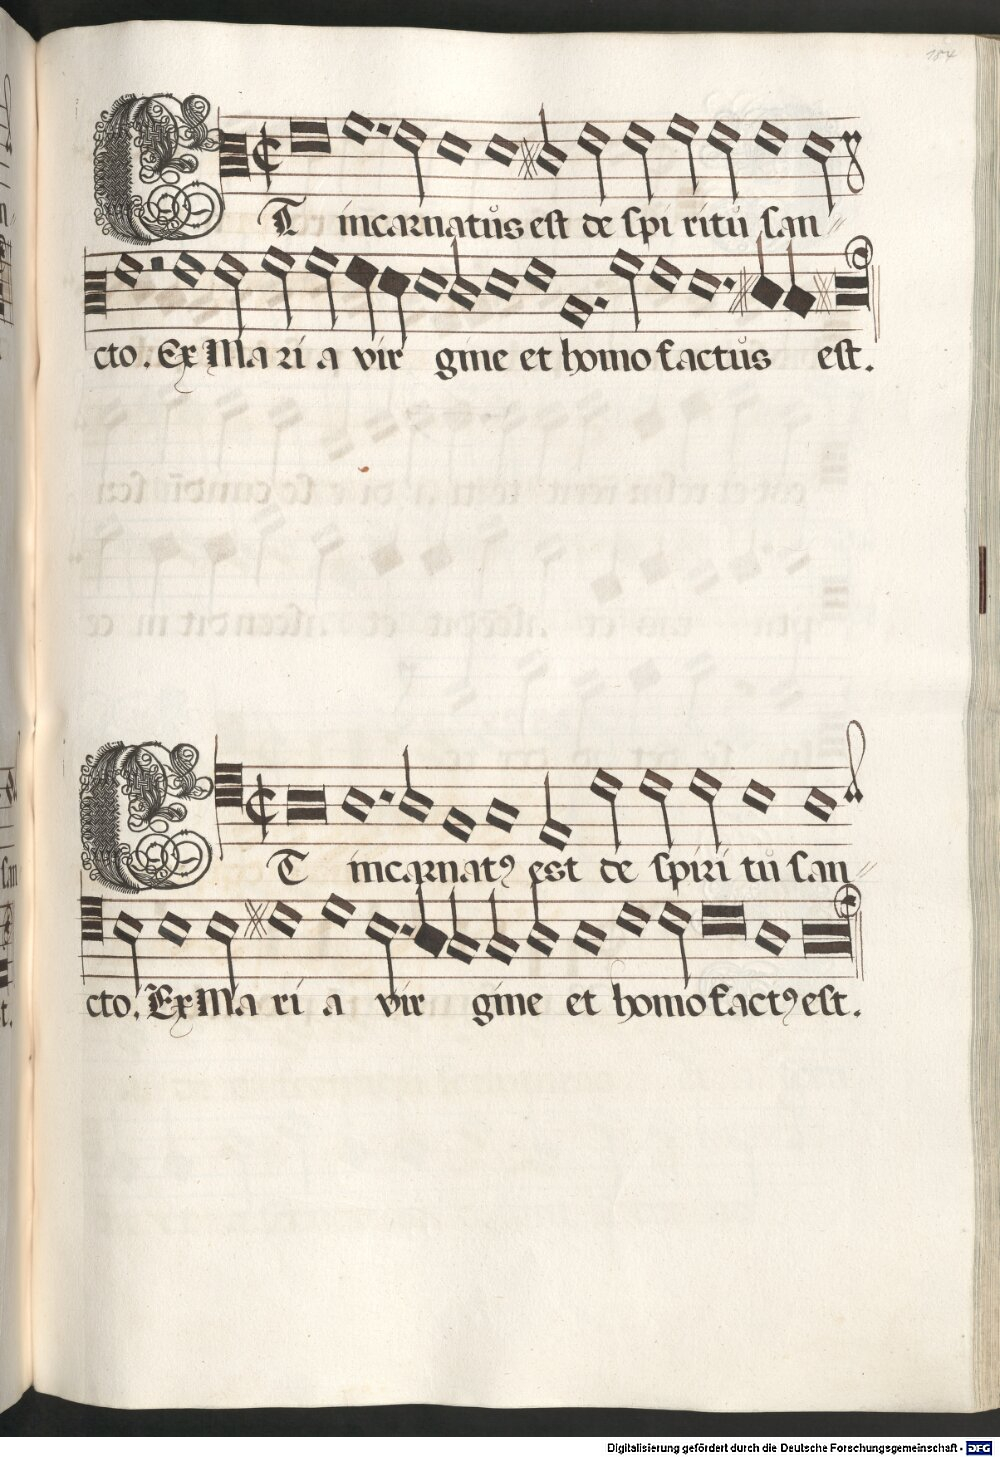 184
ET incarnatůs est de spi ritů san
cto. Ex Ma ri a vir gine et homo factůs est.
ET incarnatꝰ est de spiri tů san
cto. Ex Ma ri a vir gine et homo factꝰ est.
Digitalisierung gefördert durch die Deutsche Forschungsgemeinschaft - DFG